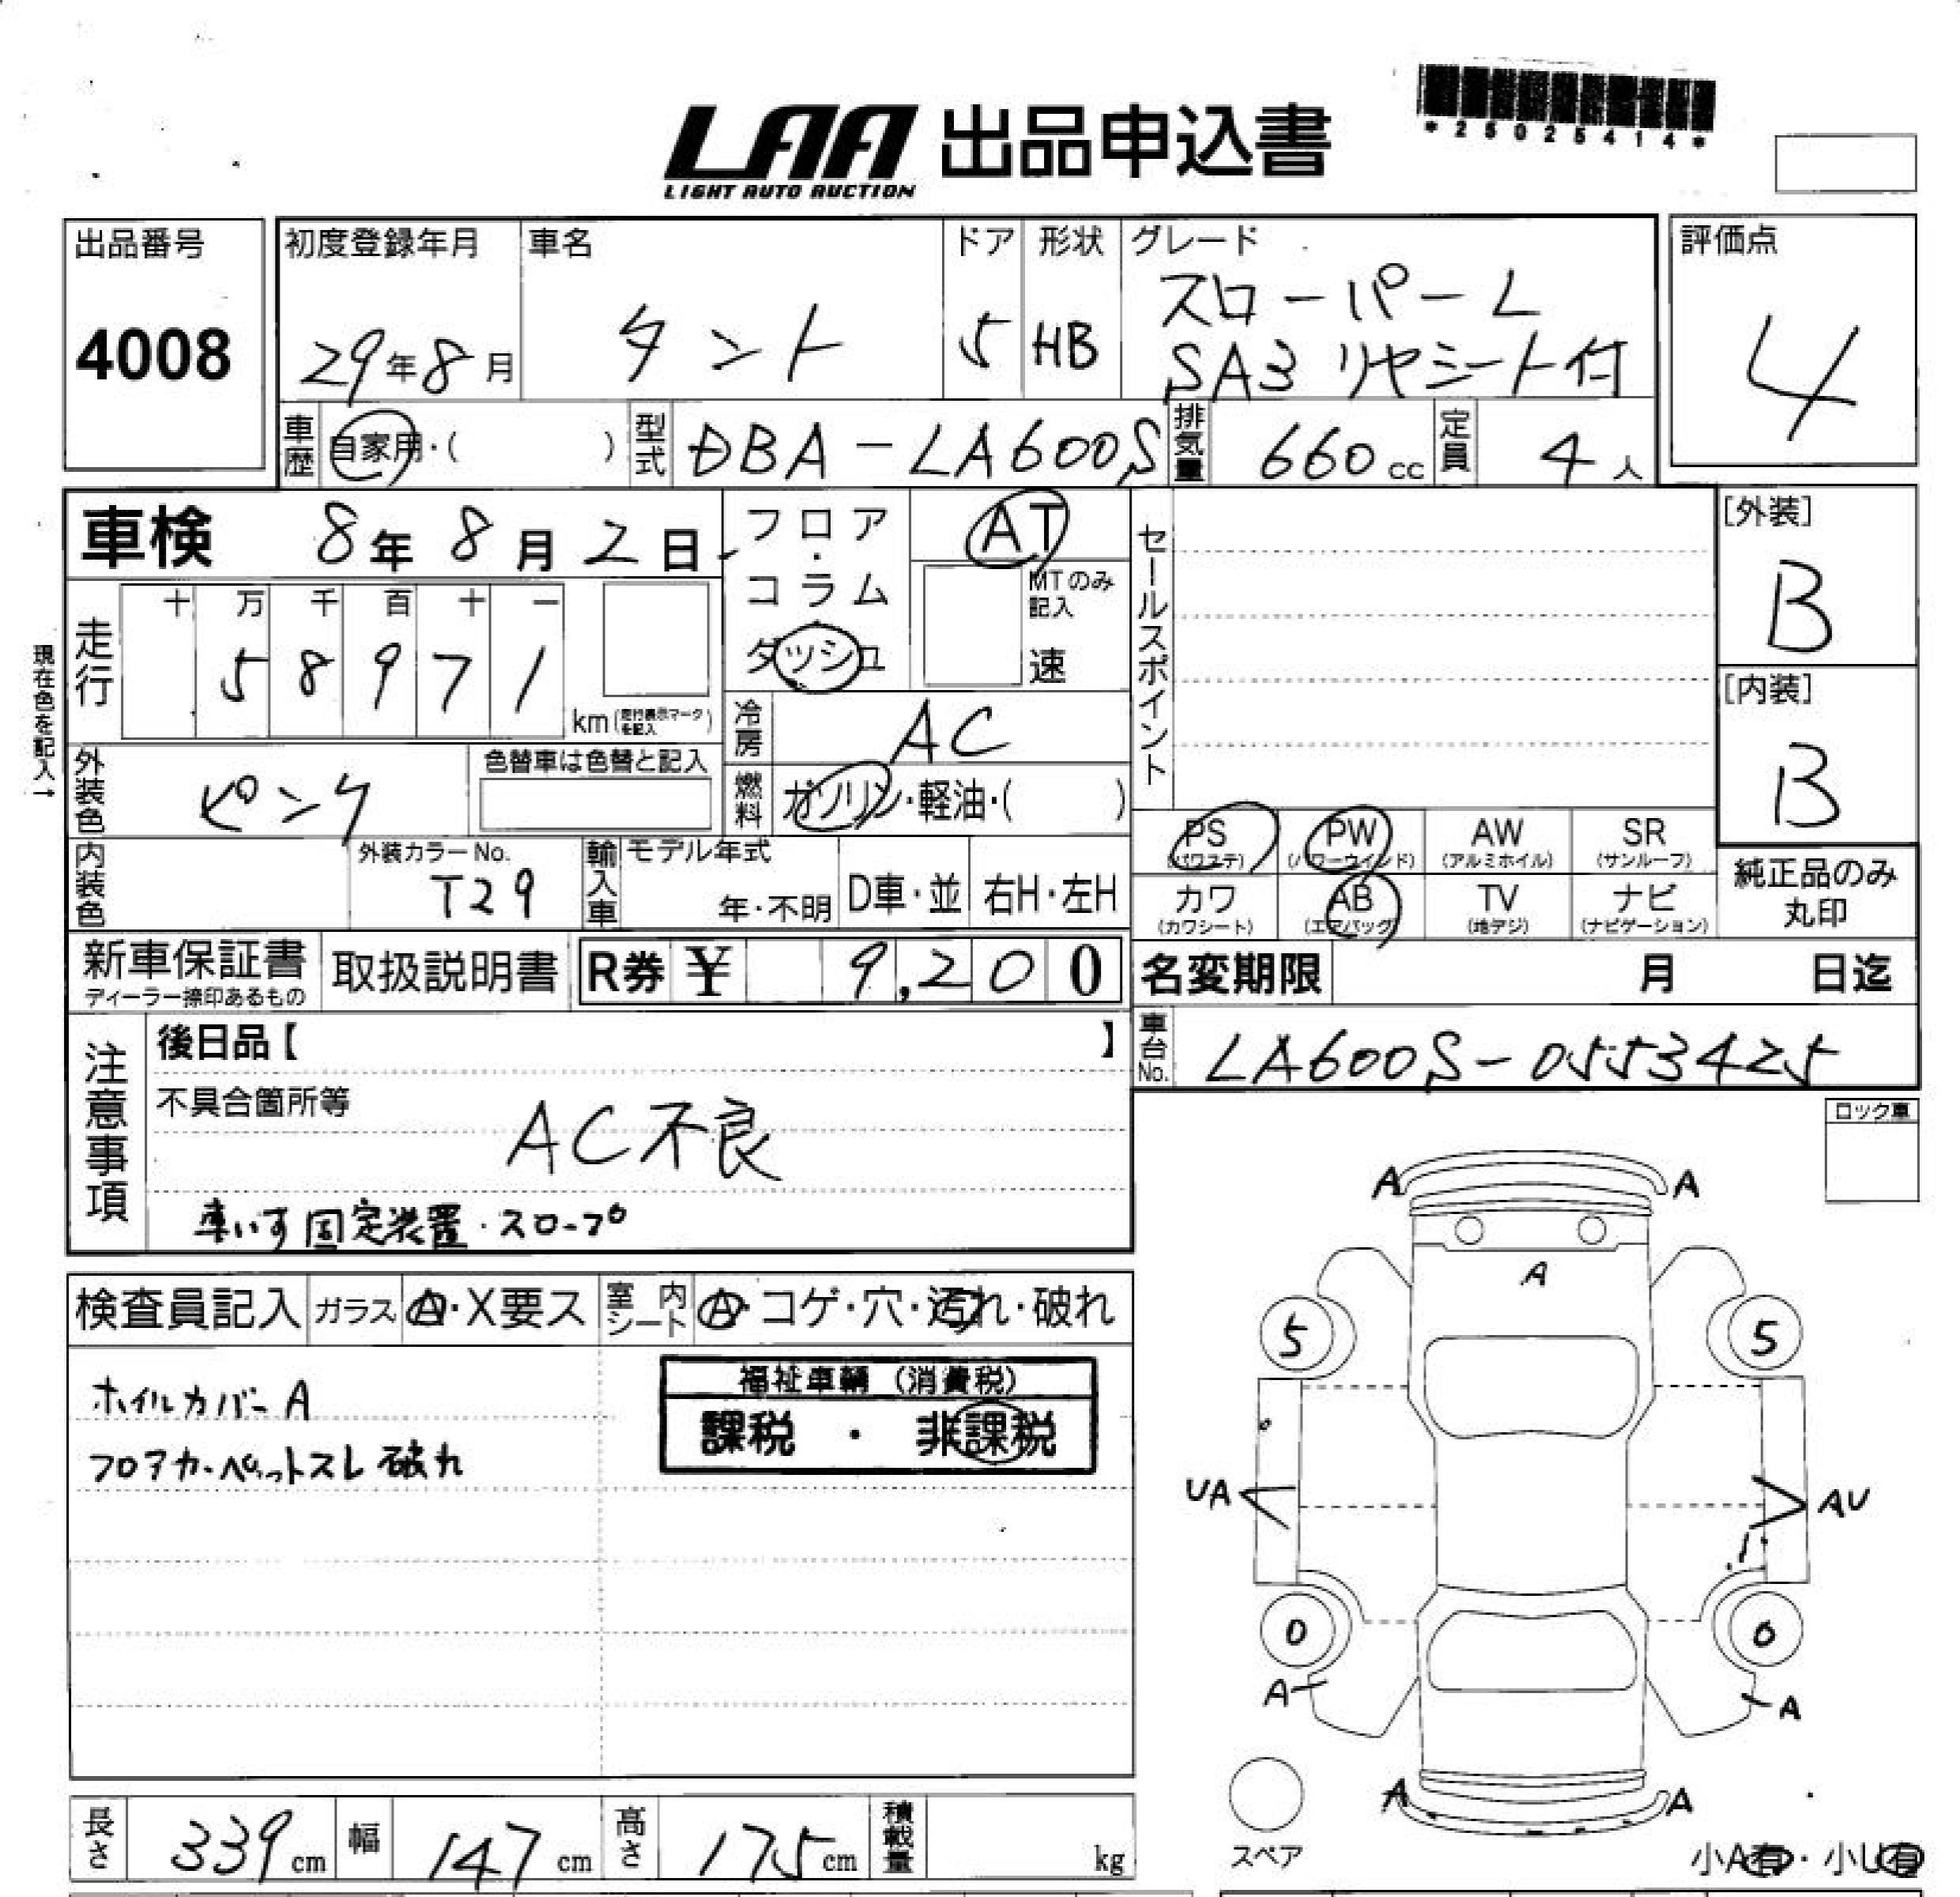 LAA 出品申込書
LIGHT AUTO AUCTION
*25025414*
出品番号
4008
初度登録年月
29年8月
車名
タント
ドア
5
形状
HB
グレード
スローパーL
SA3 リヤシート付
評価点
4
車歴
自家用・( )
型式
DBA-LA600S
排気量
660cc
定員
4人
車検 8年8月2日
フロア・コラム・ダッシュ
AT
MTのみ記入
速
セールスポイント
[外装]
B
[内装]
B
現在色を記入→
走行
十 万 千 百 十 一
5 8 9 7 1
km(走行表示マークを記入)
冷房
AC
外装色
ピンク
色替車は色替と記入
燃料
ガソリン・軽油・( )
PS
(パワステ)
PW
(パワーウインド)
AW
(アルミホイル)
SR
(サンルーフ)
内装色
外装カラーNo.
T29
輸入車
モデル年式
年・不明
D車・並
右H・左H
カワ
(カワシート)
AB
(エアバッグ)
TV
(地デジ)
ナビ
(ナビゲーション)
純正品のみ
丸印
新車保証書
ディーラー捺印あるもの
取扱説明書
R券 ¥ 9,200
名変期限 月 日迄
車台No.
LA600S-0553425
注意事項
後日品【 】
不具合箇所等
AC不良
車いす固定装置・スロープ
ロック車
検査員記入
ガラス
A・X要ス
室内シート
A・コゲ・穴・汚れ・破れ
ホイルカバーA
フロアカーペットスレ破れ
福祉車輌(消費税)
課税・非課税
A A
A
5 5
UA AU
0 0
A A
A A
スペア
小A有・小U有
長さ 339cm
幅 147cm
高さ 175cm
積載量 kg